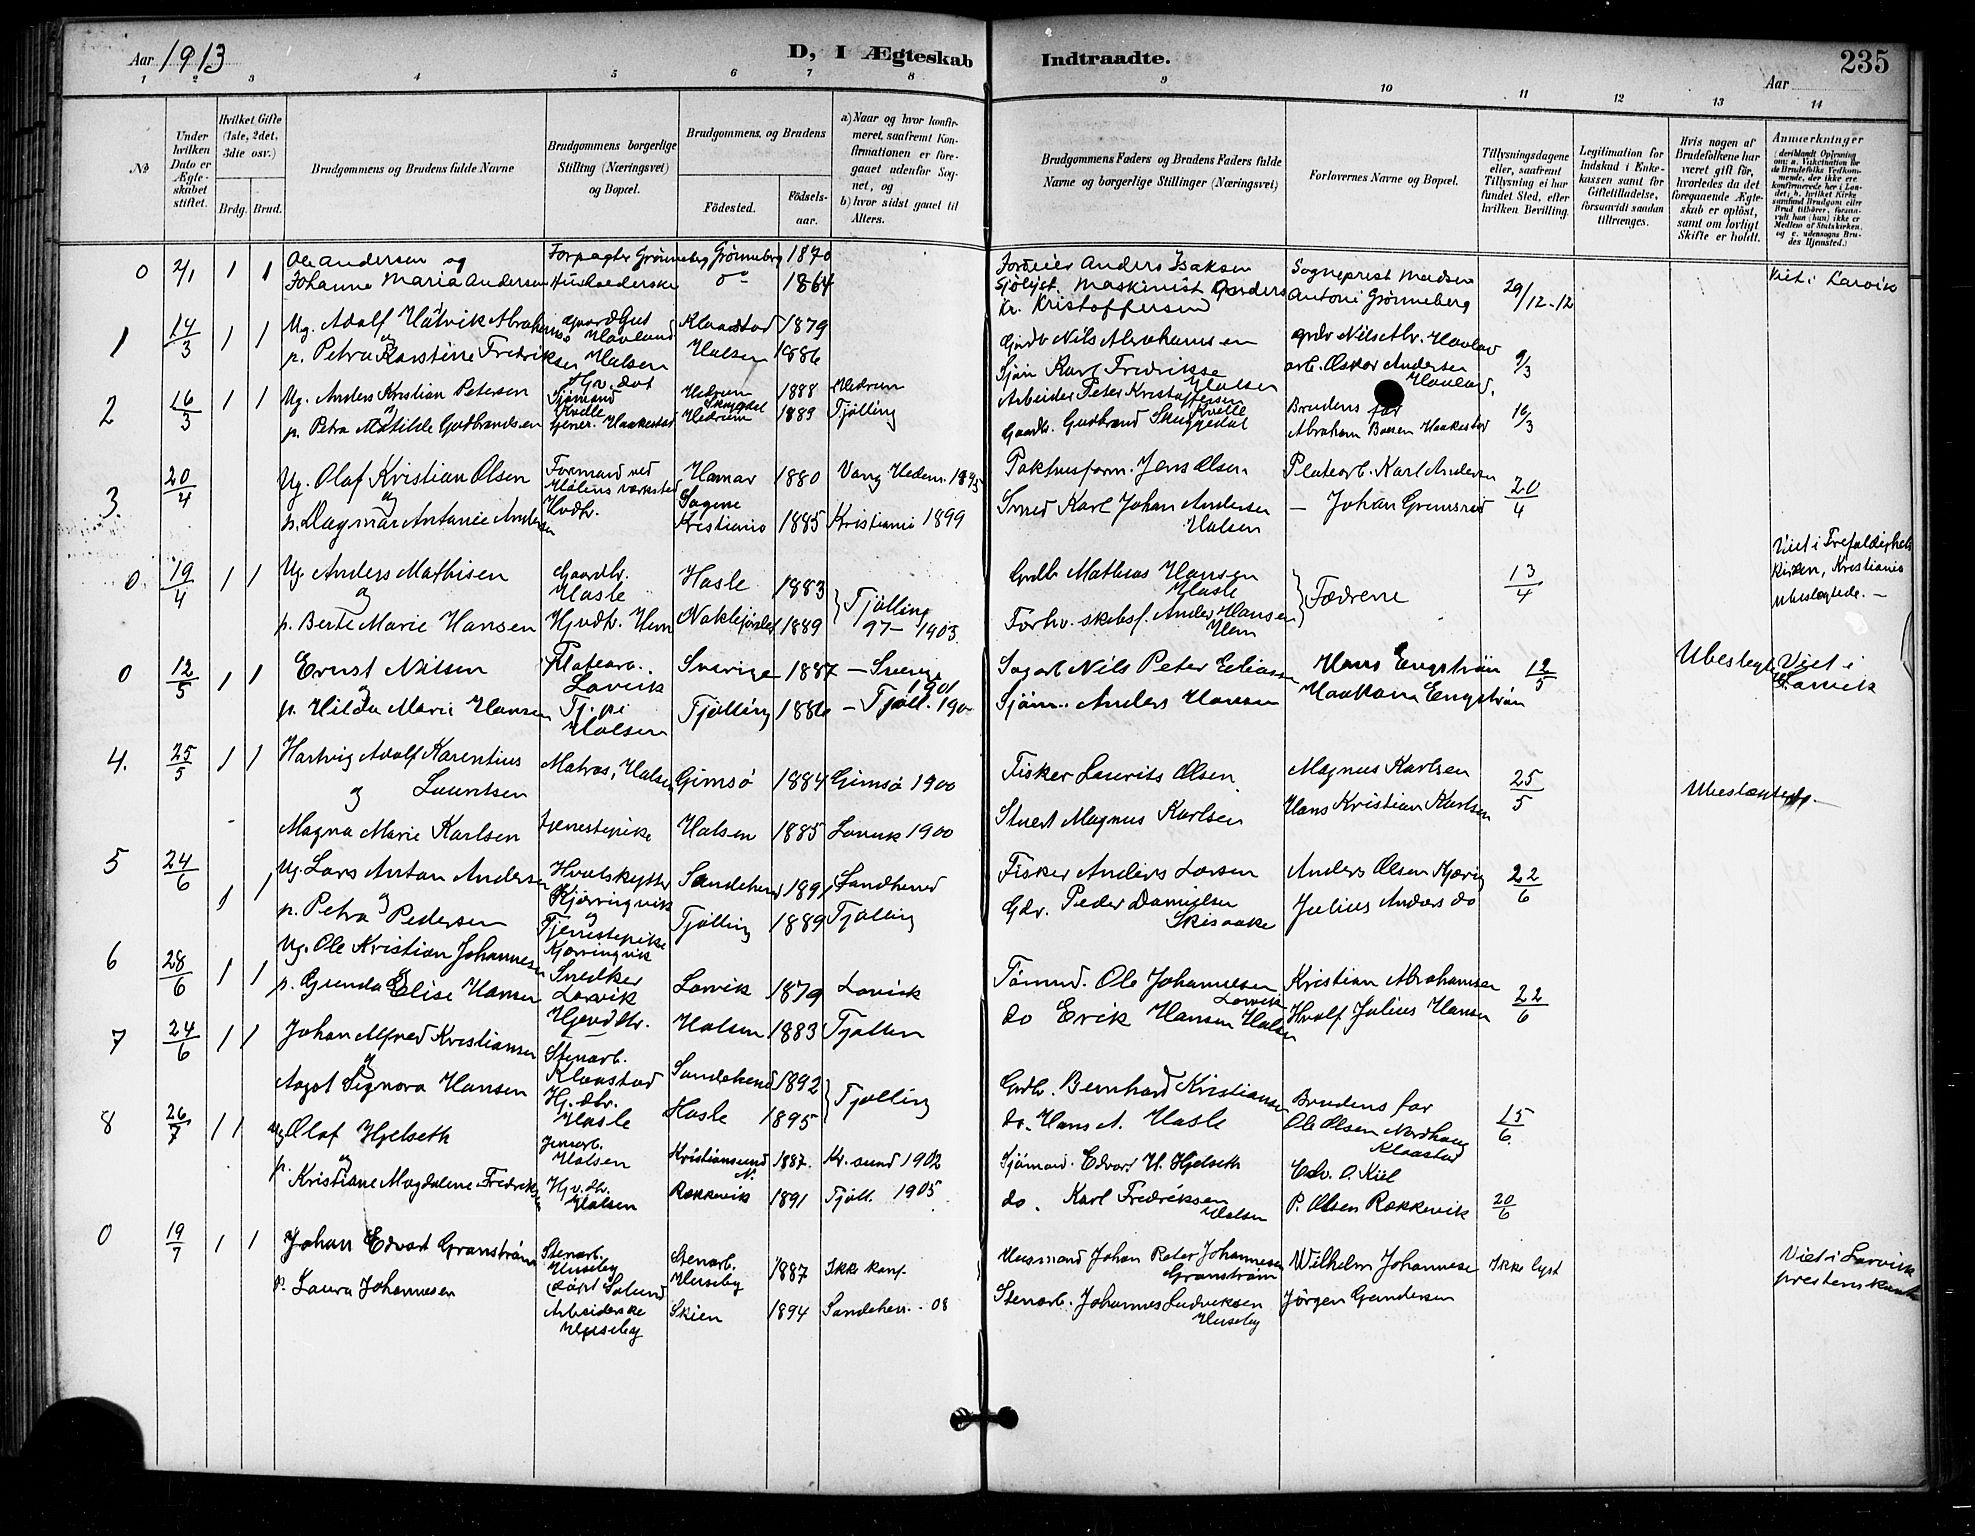 Aar 1913
D, I Ægteskab Indtraadte.
Aar
235
1 2 3 4 5 6 7 8 9 10 11 12 13 14
No.
Under hvilken Dato er Ægteskabet stiftet.
Hvilket Gifte (1ste, 2det, 3die osv.)
Brdg. Brud.
Brudgommens og Brudens fulde Navne
Brudgommens borgerlige Stilling (Næringsvei) og Bopæl.
Brudgommens, og Brudens
Födested.
Födselsaar.
a) Naar og hvor konfirmeret, saafremt Konfirmationen er foregaaet udenfor Sognet, og
b) hvor sidst gaaet til Alters.
Brudgommens Faders og Brudens Faders fulde Navne og borgerlige Stillinger (Næringsvei)
Forlovernes Navne og Bopæl.
Tillysningsdagene eller, saafremt Tillysning ei har fundet Sted, efter hvilken Bevilling.
Legitimation for Indskud i Enkekassen samt for Giftetilladelse, forsaavidt saadan tiltrænges.
Hvis nogen af Brudefolkene har været gift för, hvorledes da det foregaaende Ægteskab er oplöst, samt om lovligt Skifte er holdt.
Anmerkninger
0 2/1 1 1 Ole Andersen og Forpagter Grønneberg Grønneberg 1870 Anders Isaksen Sogneprest Madsen 29/12-12 Viet i Larvik
Johanne Maria Andersen Husholderske do 1864 Maskinist Anders Kr. Kristoffersen Antoni Grønneberg
1 14/3 1 1 Ug. Adolf Abrahams Havland Klaastad 1879 Gaardb Nils Abrahamsen Grdbr Nils Abr. Havland 9/3
og
p. Petra Karstine Fredriksen Halsen Halsen 1886 Sjöm Karl Fredrikse Halsen arb. Oskar Andersen Havland.
2 16/3 1 1 Ug. Anders Kristian Petersen Sjömand Kvelle Hedrum 1888 Hedrum Arbeider Peter Kristoffersen Kvelle Brudens far 16/3
og
p. Petra Matilde Gudbrandsen Tjener. Haakestad Hedrum 1883 Tjölling Gaardb. Gudbrand Skuggedal Abraham Haakestad
3. 20/4 Ug. Olaf Kristian Olsen Formand ved Hamar 1880 Vang Hedem. 1895 Pakhusform. Jens Olsen Platearb. Karl Andersen 20/4
og
p. Dagmar Antonie Andersen Hvdtr. Sagene Kristiania 1885 Kristiania 1899 Smed Karl Johan Andersen Halsen — Johan Gremsrød
0. 19/4 1 1 Ug. Anders Mathisen Gaardbr. Hasle Hasle 1883 Tjölling Grdb Mathias Hansen Hasle Fædrene 13/4 Viet i Trefoldigheds Kirken, Kristiania ubeslegtede. —
og
p. Berte Marie Hansen Hjvdtr. Hem 1889 97 - 1903. Forhv. skibsf. Anders Hansen Hem
0 12/5 1 1 Ernst Nilsen Platearb. Larvik Sverige 1887 — Sverige 1901 Sagarb Nils Peter Eliassen Hans Engström 12/5 Ubeslegt Viet i Larvik
og
p. Hilda Marie Hansen Tj. pi Halsen Tjölling 1886 — Tjöll. Sjöm. Anders Hansen Haakon Engström
4. 25/5 1 1 Hartvig Adolf Karentius Lauritsen Matros, Halsen Gimsö 1884 Gimsö 1900 Fisker Laurits Olsen Magnus Karlsen 25/5
og
Magna Marie Karlsen tjenestepike Halsen 1885 Larvik 1900 Stuert Magnus Karlsen Hans Kristian Karlsen
5 24/6 1 1 Ug. Lars Anton Andersen Hvalskytter Kjærringvik Sandeherred 1891 Sandherred Fisker Anders Larsen Anders Olsen Kjærvig 22/6
og
p. Petra Pedersen Tjenestepike Kjærringvik Tjölling 1889 Tjölling Gdr. Peder Danielsen Skisaake Julius Anders do
6 28/6 1 1 Ug. Ole Kristian Johannesen Snedker Larvik Larvik 1879 Larvik Tömmd. Ole Johannesen Larvik Kristian Abrahamsen 22/6
og
p. Gunda Elise Hansen Hjemdtr. Halsen 1883 Tjölling do Erik Hansen Halsen Hvalf Julius Hansen
7 24/6 1 1 Johan Alfred Kristiansen Stenarb. Klaastad Sandeherred 1892 Tjølling Grdb. Bernhard Kristiansen Brudens far 15/6.
og
Aagot Signora Hansen Hj. dtr. Hasle Hasle 1895 do. Hans A. Hasle Ole Olsen Nordhaug Klaastad
8 26/7 1 1 Ug Olaf Hjelseth Halsen Kristiansund N. 1887. Kr. sund 1902 Sjömand. Edvart H. Hjelseth Edv. O. Kiel
og
p. Kristiane Magdalene Fredriksen Hj.v.dtr. Halsen Rækkevik 1891 Tjöll. 1905 do. Karl Fredriksen Halsen P. Olsen Rækkevik 20/6
0 19/7 1 1 Johan Edvart Granström Stenarb. Huseby Stenarb. Huseby 1887 Ikke konf. Husmand Johan Peter Johannesen Granström Wilhelm Johannese Ikke lyst Viet i Larvik
p. Laura Johannesen Arbeiderske Huseby Skien 1894 Sandeher. - 08 Stenarb. Johannes Ludviksen Huseby Jörgen Gundersen